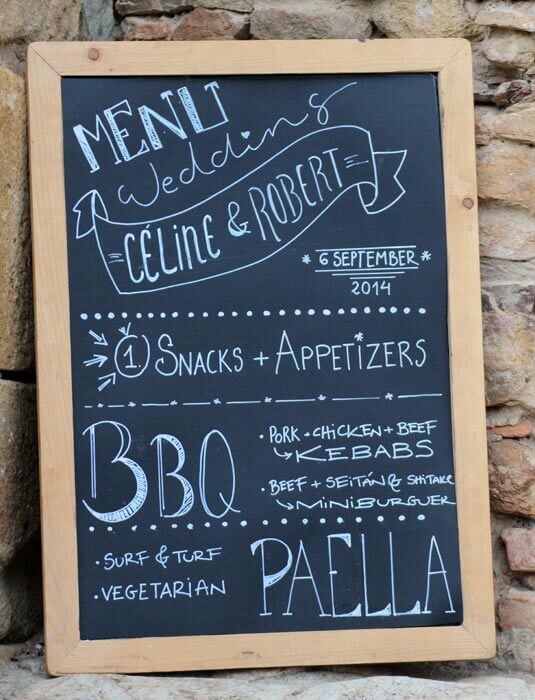 MENU
Wedding
CÉLINE & ROBERT
* 6 SEPTEMBER *
2014
1 SNACKS + APPETIZERS
BBQ
• PORK + CHICKEN + BEEF
KEBABS
• BEEF + SEITÁN & SHITAKE
MINIBURGUER
• SURF & TURF
• VEGETARIAN
PAELLA